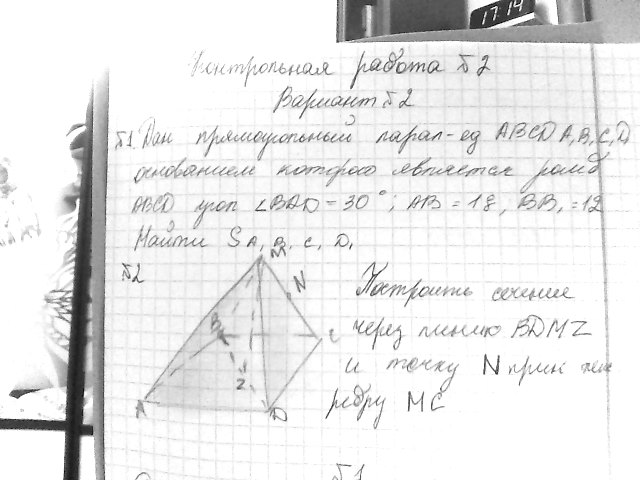 17:14
Контрольная работа №2
Вариант №2
№1 Дан прямоугольный парал-ед ABCDA₁B₁C₁D₁
основанием которого является ромб
ABCD угол ∠BAD = 30°; AB = 18, BB₁ = 12
Найти S A₁B₁C₁D₁
№2
M
N
B
C
Z
A
D
Построить сечение
через линию BDMZ
и точку N
ребру MC
№1